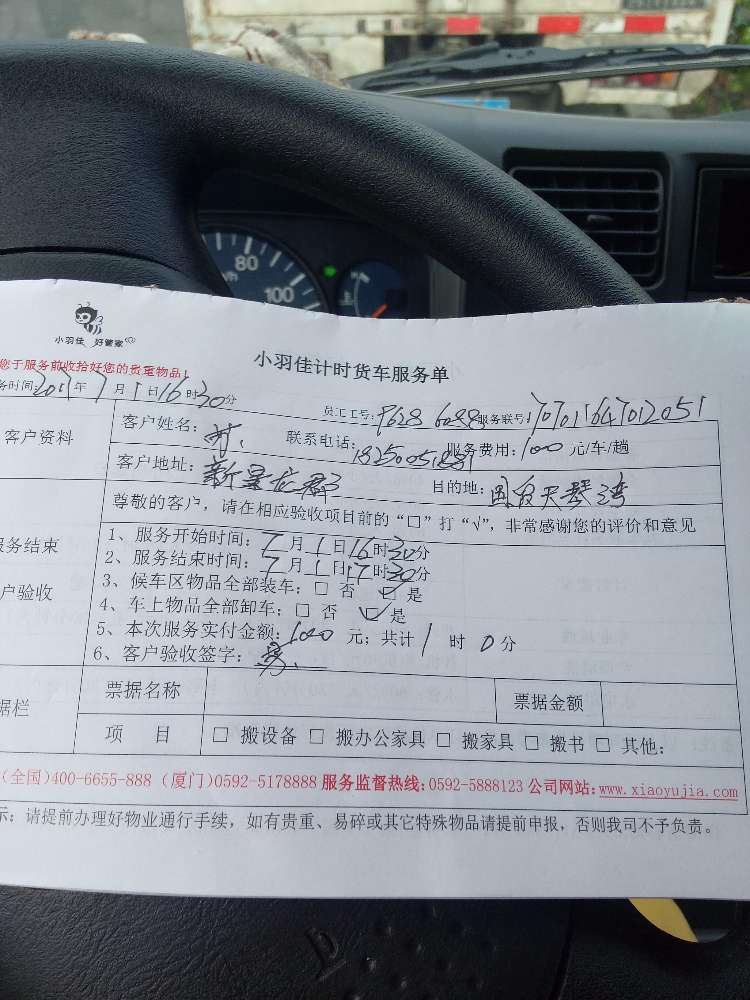 小羽佳 好管家
小羽佳计时货车服务单
您于服务前收拾好您的贵重物品!
务时间:2017年7月1日16时30分
员工工号: 服务联号:
客户资料
客户姓名: 联系电话: 服务费用:1000元/车/趟
客户地址:新景花郡 目的地:国贸天琴湾
尊敬的客户,请在相应验收项目前的“□”打“√”,非常感谢您的评价和意见
服务结束
户验收
1、服务开始时间:7月1日16时30分
2、服务结束时间:7月1日17时30分
3、候车区物品全部装车:□ 否 ☑是
4、车上物品全部卸车:□ 否 ☑是
5、本次服务实付金额:1000元;共计1时0分
6、客户验收签字:
据栏
票据名称 票据金额
项 目 □ 搬设备 □ 搬办公家具 □ 搬家具 □ 搬书 □ 其他:
(全国)400-6655-888 (厦门)0592-5178888 服务监督热线:0592-5888123 公司网站:www.xiaoyujia.com
示:请提前办理好物业通行手续,如有贵重、易碎或其它特殊物品请提前申报,否则我司不予负责。
80
100
km/h
H